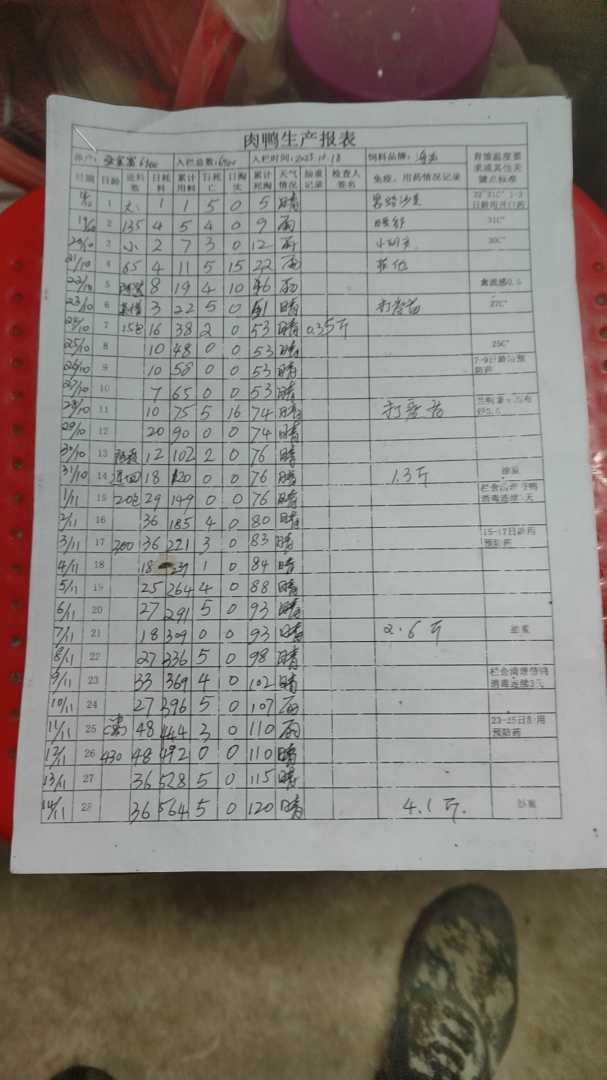 肉鸭生产报表
养户: 6400 入栏总数: 6400 入栏时间: 2025.10.18 饲料品牌: 育雏温度要求或其他关键点标准
日期 日龄 进料数 日耗料 累计用料 日死亡 日淘汰 累计死淘 天气情况 抽重记录 检查人签名 免疫、用药情况记录
1 大 1 1 5 0 5 晴
19/10 2 135 4 5 4 0 9 雨 31C°
20/10 3 小 2 7 3 0 12 雨 30C°
21/10 4 65 4 11 5 15 22 雨
22/10 5 8 19 4 10 46 雨 禽流感0.5
23/10 6 3 22 5 0 51 晴 27C°
24/10 7 15包 16 38 2 0 53 晴 0.35斤
25/10 8 10 48 0 0 53 晴 25C°
26/10 9 10 58 0 0 53 晴 7-9日龄 预防药
27/10 10 7 65 0 0 53 晴
28/10 11 10 75 5 16 74 晴
29/10 12 20 90 0 0 74 晴
30/10 13 12 102 2 0 76 晴
31/10 14 18 120 0 0 76 晴 1.3斤 称重
1/11 15 20包 29 149 0 0 76 晴 消毒连续 天
16 36 185 4 0 80 晴
3/11 17 200 36 221 3 0 83 晴 15-17日 预防药
4/11 18 18 1 0 84 晴
5/11 19 25 264 4 0 88 晴
6/11 20 27 291 5 0 93 晴
7/11 21 18 309 0 0 93 晴 2.6斤 称重
8/11 22 27 336 5 0 98 晴
9/11 23 33 369 4 0 102 晴 消毒连续3天
10/11 24 27 396 5 0 107 雨
11/11 25 48 444 3 0 110 雨 23-25日 用预防药
12/11 26 430 48 492 0 0 110 晴
13/11 27 36 528 5 0 115 晴
14/11 28 36 564 5 0 120 晴 4.1斤. 称重